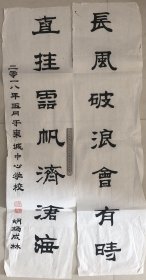 長風破浪會有時
直挂雲帆濟滄海
二零一八年五月于襄城中心学校
胡
林